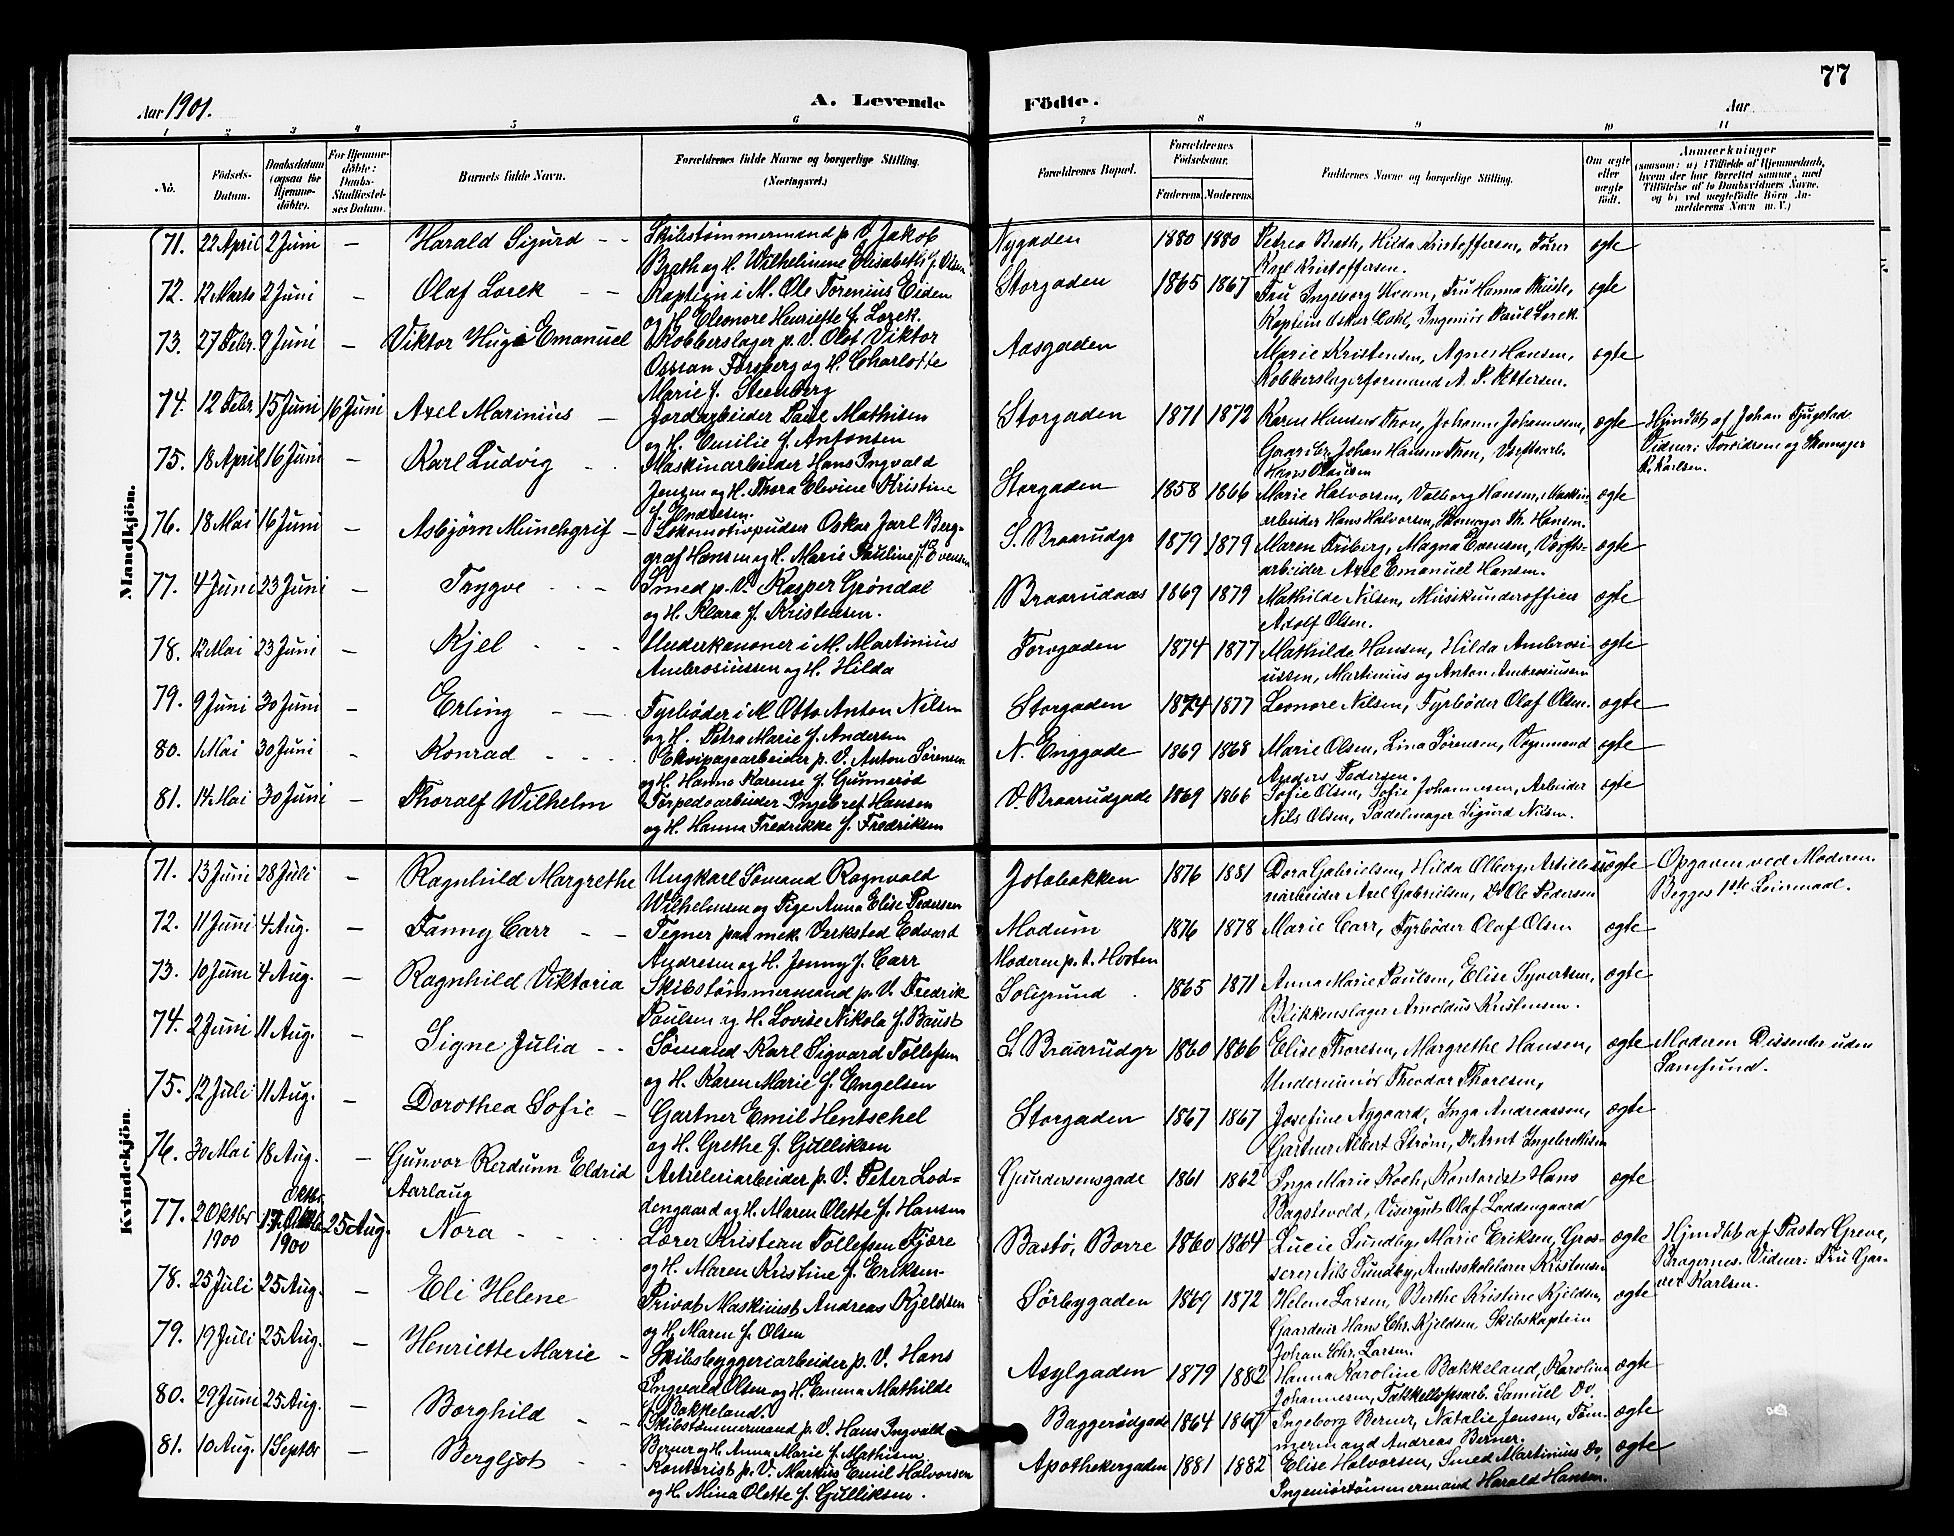 77
Aar 1901.
A. Levende
Födte.
Aar
1 2 3 4 5 6 7 8 9 10 11
No.
Födsels-Datum.
Daabsdatum (ogsaa for Hjemme-döbte).
For Hjemme-döbte: Daabs-Stadfæstel-ses Datum.
Barnets fulde Navn.
Forældrenes fulde Navne og borgerlige Stilling. (Næringsvei.)
Forældrenes Bopæl.
Forældrenes Födselsaar.
Faderens. Moderens.
Faddernes Navne og borgerlige Stilling.
Om ægte eller uægte födt.
Anmærkninger
(saasom: a) i Tilfælde af Hjemmedaab, hvem der har forrettet samme, med Tilföielse af to Daabsvidners Navne, og b) ved uægtefödte Börn Anmelderens Navn m. V.)
Mandkjön.
71. 22 April 2 Juni — Harald Sigurd - - Skibstømmermand p. V. Jakob Nygaden 1880 1880 Petrea Brath, Hilda Kristoffersen, Fører ægte
Brath og H. Wilhelmine Elisabeth f. Olsen Karl Kristoffersen.
72. 12 Marts 2 Juni — Olaf Lorek - - Kaptein i M. Ole Torenius Eiden Storgaden 1865 1867 Fru Ingeborg Hvem, Fru Hanna Thiis, ægte
og H. Eleonore Henriette f. Lorek. Kaptein Oskar Dahl, Ingeniør Paul Lorek
73. 27 Febr. 9 Juni — Viktor Hugo Emanuel Kobberslager p. V. Olof Viktor Aasgaden Marie Kristensen, Agnes Hansen, ægte
Ossian Forsberg og H. Charlotte Kobberslagerformand A. P. Pettersen.
Marie f. Stenberg
74. 12 Febr. 15 Juni 16 Juni Axel Marinius — Jordarbeider Paul Mathisen Storgaden 1871 1872 Karen Hansens Thon, Johanne Johannesen, ægte Hjmdbt af Johan Fjugstad.
og H. Emilie f. Antonsen Gaardbr. Johan Hansen Thon, Værftsarb. Hans Olausen Vidner: Forældrene og Skomager K. Karlsen.
75. 18 April 16 Juni — Karl Ludvig - - Maskinarbeider Hans Ingvald Storgaden 1858 1866 Marie Halvorsen, Valborg Hansen, Maskin- ægte
Jensen og H. Thora Elevine Kristine f. Endresen. arbeider Hans Halvorsen, Skomager Th. Hansen.
76. 18 Mai 16 Juni — Asbjørn Münchgrif — Lokomotivpudser Oskar Jarl Berg- S. Braarudgt 1879 1879 Maren Friberg, Magna Evensen, Verfts- ægte
graf Hansen og H. Marie Pauline f. Evensen arbeider Axel Emanuel Hansen.
77. 4 Juni 23 Juni — Trygve - - Smed p. V. Kasper Grøndal Braarudaas 1869 1879 Mathilde Nilsen, Musikunderofficer ægte
og H. Klara f. Kristensen. Adolf Olsen.
78. 12 Mai 23 Juni — Kjel - - - Underkanoner i M. Martinius Torvgaden 1874 1877 Mathilde Hansen, Hilda Ambrosi- ægte
Ambrosiussen og H. Hilda ussen, Martinius og Anton Ambrosiussen
79. 9 Juni 30 Juni — Erling - — Fyrbøder i M Otto Anton Nilsen Storgaden 1874 1877 Leonore Nilsen, Fyrbøder Olaf Olsen. ægte
og H. Petra Marie f. Andersen
80. 1 Mai 30 Juni — Konrad - - - Ekvipagearbeider p. V. Anton Sørensen N. Enggade 1869 1868 Marie Olsen, Lina Sørensen, Vognmand ægte
og H. Hanna Karense f. Gunnerød Anders Pedersen.
81. 14 Mai 30 Juni — Thoralf Wilhelm Torpedoarbeider Ingebret Hansen V. Braarudgade 1869 1866 Sofie Olsen, Sofie Johannesen, Arbeider ægte
og H. Hanna Fredrikke f. Fredriksen Nils Olsen, Sadelmager Sigurd Nilsen.
Kvindekjön.
71. 13 Juni 28 Juli Ragnhild Margrethe Ungkarl Sømand Ragnvald Jotabakken 1876 1881 Dora Gabrielsen, Hilda Olberg, Artille- uægte Opgaven ved Moderen.
Wilhelmsen og Pige Anna Elise Pedersen riarbeider Axel Gabrielsen, Do Ole Pedersen Begges 1ste Leiermaal.
72. 11 Juni 4 Aug. — Fanny Carr - - Tegner paa mek. Verksted Edvard Modum 1876 1878 Marie Carr, Fyrbøder Olaf Olsen ægte
Andresen og H. Jenny f. Carr Moderen p. t. Horten
73. 10 Juni 4 Aug. — Ragnhild Viktoria Skibstømmermand p. V. Fredrik Soligrund 1865 1871 Anna Marie Paulsen, Elise Syvertsen, ægte
Paulsen og H. Lovise Nikola f. Baust Blikkenslager Arnoldus Kristensen.
74. 2 Juni 11 Aug. — Signe Julia - - Sømand Karl Sigvard Tollefsen S. Braarudgt 1860 1866 Elise Thoresen, Margrethe Hansen, ægte Moderen Dissenter uden
og H. Karen Marie f. Engelsen Underminør Theodor Thoresen, Samfund.
75. 12 Juli 11 Aug. — Dorothea Sofie — Gartner Emil Hentschel Storgaden 1867 1867 Josefine Nygaard, Inga Andreassen, ægte
og H. Grethe f. Gulliksen Gartner Albert Strøm, Do Arnt Ingebretsen
76. 30 Mai 18 Aug. — Gunvor Rerdunn Eldrid Artilleriarbeider p. V. Peter Lod- Gundersensgade 1861 1862 Inga Marie Koch, Kontorist Hans ægte
Aarlaug dengaard og H. Maren Olette f. Hansen Bagstevold, Visergut Olaf Loddengaard
77. 2 Oktbr 1900 17 Oktbr. 1900 25 Aug. Nora - - - - Lærer Kristian Tollefsen Fjøre Bastø, Borre 1860 1864 Lucie Sundby, Marie Eriksen, Gros- ægte Hjmdbt af Pastor Greve,
og H. Maren Kristine f. Eriksen serer Nils Sundby, Amtsskolelærer Kristensen Bragernes. Vidner: Fru Gar-
ver Karlsen.
78. 25 Juli 25 Aug. — Eli Helene Privat Maskinist Andreas Kjeldsen Sørbygaden 1869 1872 Helene Larsen, Berthe Kristine Kjeldsen, ægte
og H. Maren f. Olsen Gaardeier Hans Chr. Kjeldsen, Skibskaptein
Johan Chr. Larsen.
79. 19 Juli 25 Aug. — Henriette Marie - Skibsbyggeriarbeider p. V. Hans Asylgaden 1879 1882 Hanna Karoline Bakkeland, Karoline ægte
Ingvald Olsen og H. Emma Mathilde f. Bakkeland. Johannesen, Takkelloftsarb. Samuel Do,
80. 29 Juni 25 Aug. — Borghild - - Skibstømmermand p. V. Hans Ingvald Baggerødgade 1864 1867 Ingeborg Berner, Natalie Jensen, Tøm- ægte
Berner og H. Anna Marie f. Mathisen mermand Andreas Berner.
81. 10 Aug. 1 Septbr — Bergljot - - Kontorist p. V. Markus Emil Halvorsen Apothekergaden 1881 1882 Elise Halvorsen, Smed Martinius Do, ægte
og H. Mina Olette f. Gulliksen. Ingeniørtømmermand Harald Hansen.